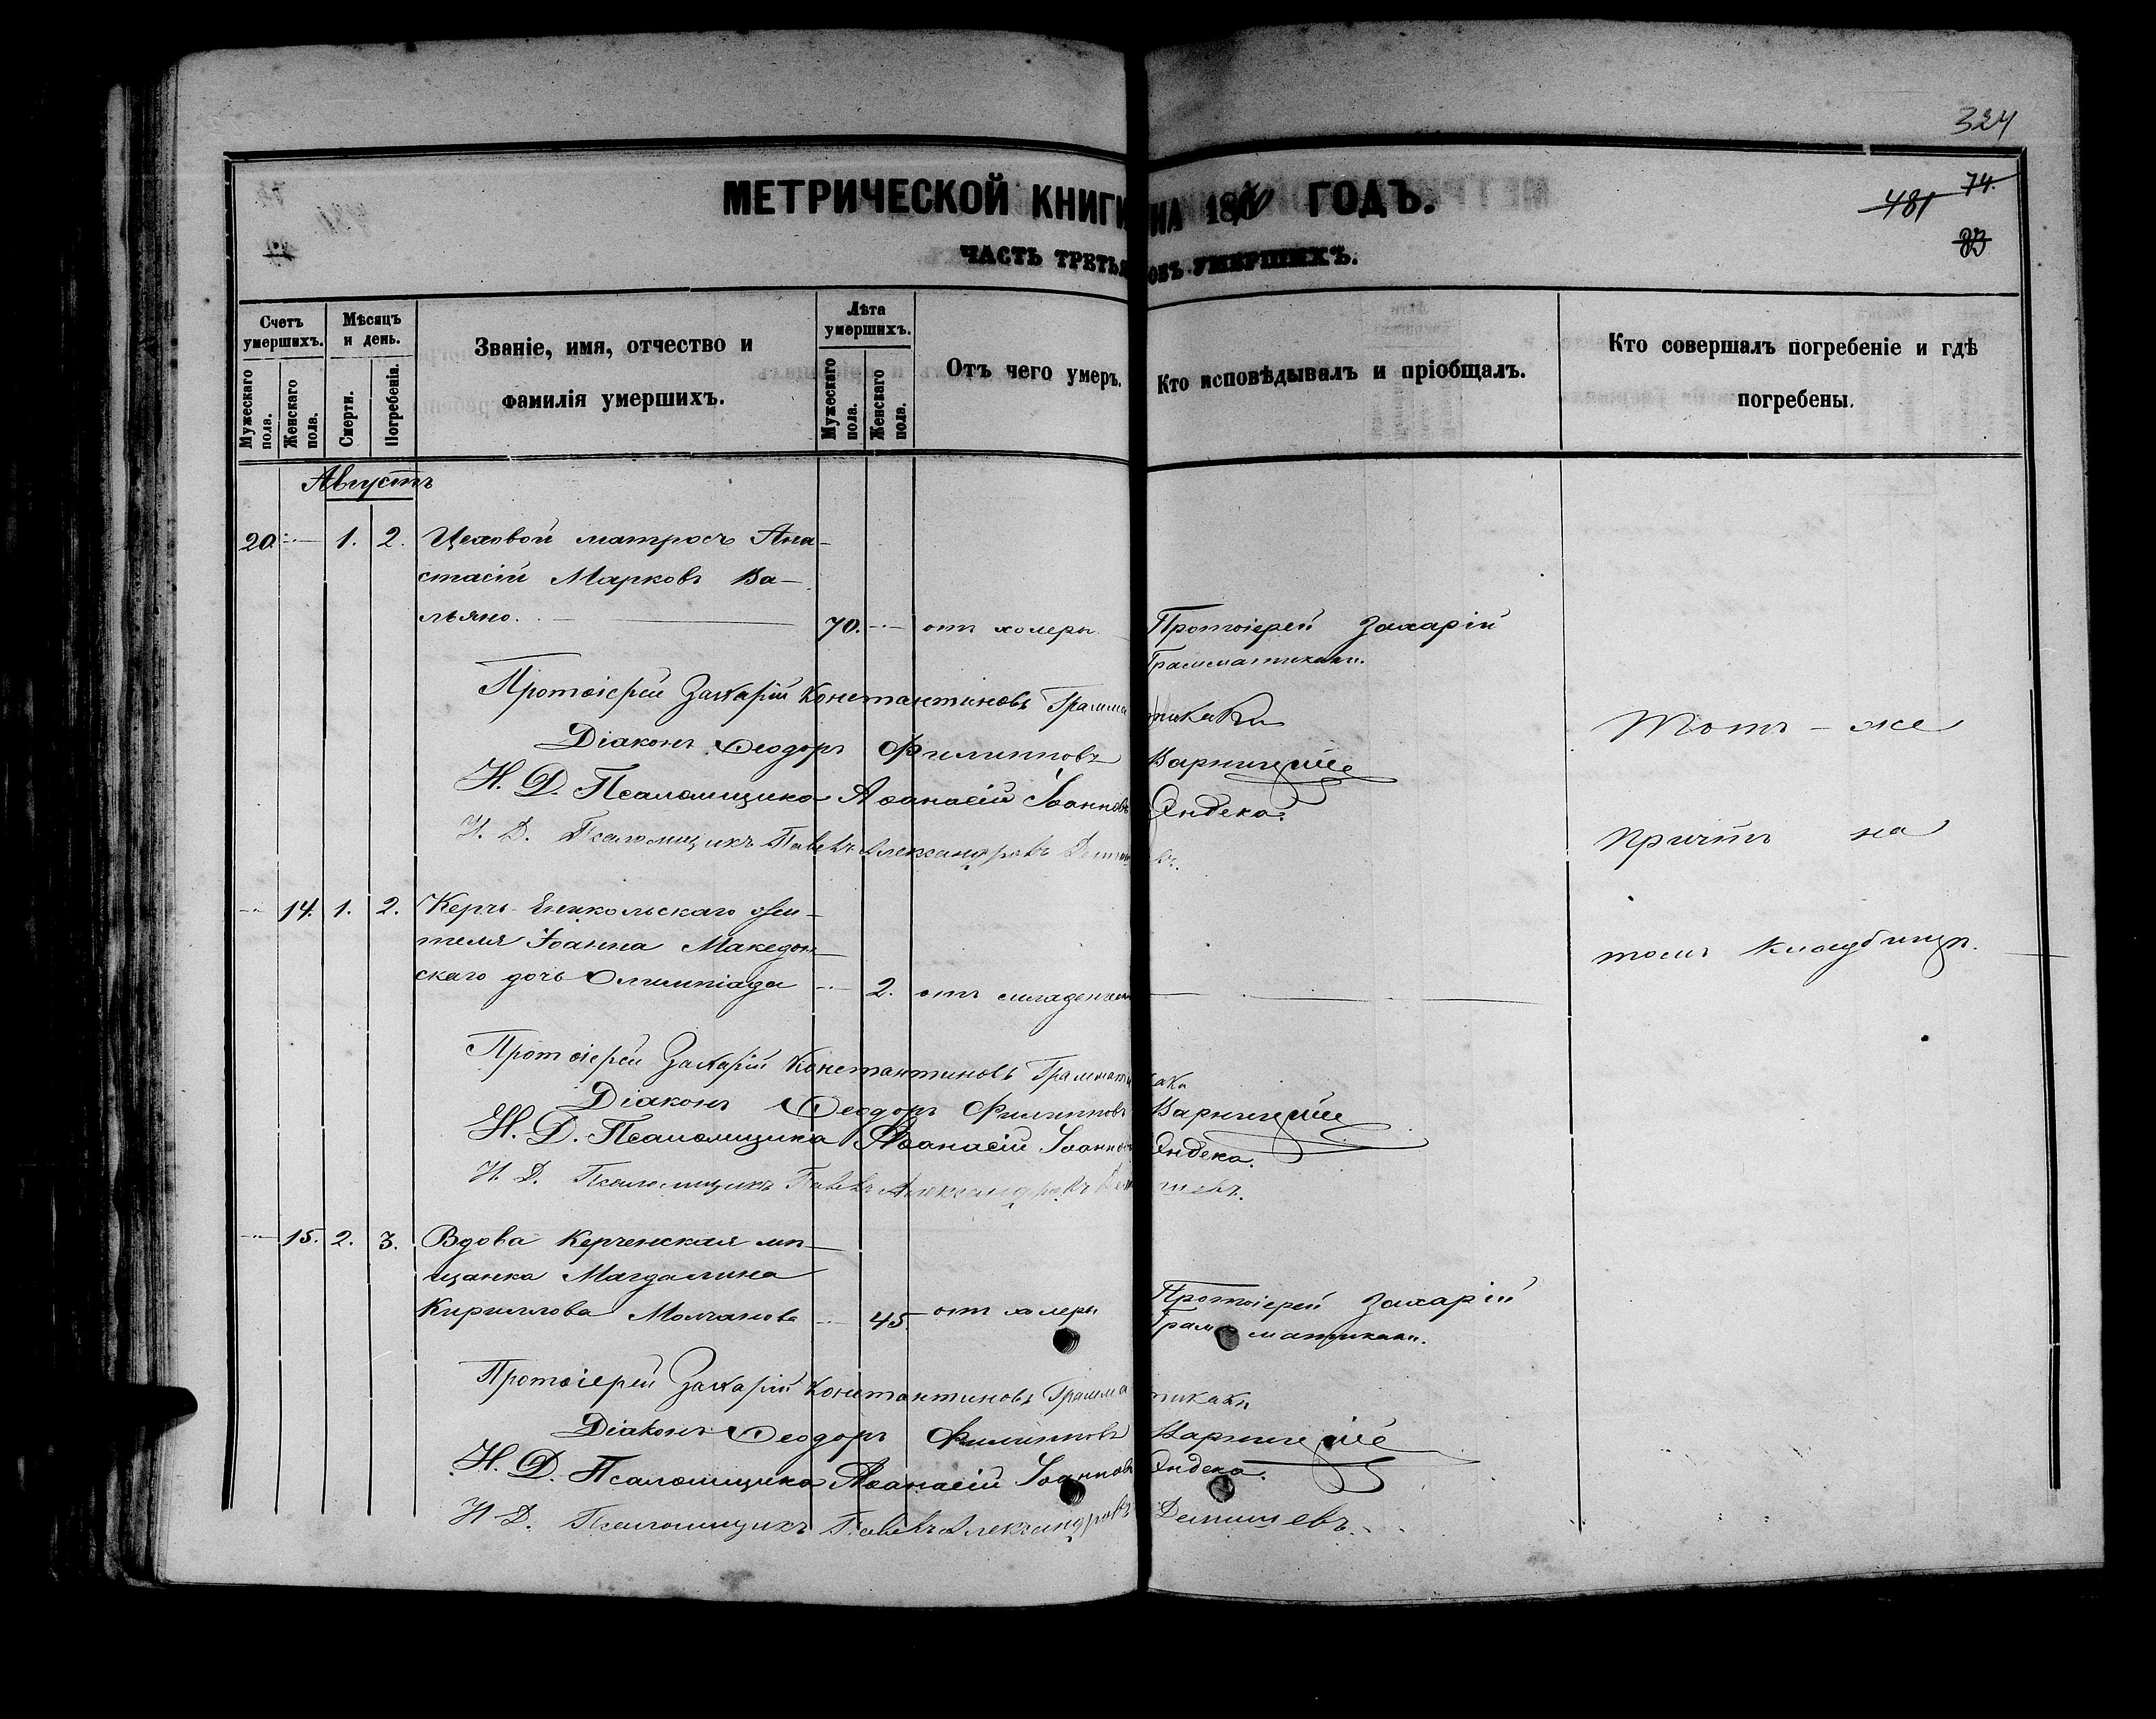 324
МЕТРИЧЕСКОЙ КНИГИ НА 18 ГОДЪ.
481 74.
83
ЧАСТЬ ТРЕТЬЯ УМЕРШИХЪ.
Счетъ умершихъ.
Мужескаго пола.
Женскаго пола.
Мѣсяцъ и день.
Смерти.
Погребенія.
Званіе, имя, отчество и
фамилія умершихъ.
Лѣта умершихъ.
Мужескаго пола.
Женскаго пола.
Отъ чего умеръ.
Кто исповѣдывалъ и пріобщалъ.
Кто совершалъ погребеніе и гдѣ
погребены.
Августъ
20. 1. 2. Цеховой матросъ Ана-
стасій Марковъ Ва-
льяно. 70. отъ холеры Протоіерей Захарій
Грамматикаки.
Протоіерей Захарій Константиновъ Грамматикаки
Діаконъ Ѳеодоръ Филипповъ
И. Д. Псаломщика Аѳанасій Іоанновъ Яндека.
И. Д. Псаломщикъ Павелъ Александровъ
Тотъ-же
Причтъ на
томъ кладбищѣ.
14. 1. 2. Керчь-Еникольскаго жи-
теля Іоанна Македон-
скаго дочь Олимпіада 2. отъ младенчес
Протоіерей Захарій Константиновъ Грамматикаки
Діаконъ Ѳеодоръ Филипповъ
И. Д. Псаломщика Аѳанасій Іоанновъ Яндека.
И. Д. Псаломщикъ Павелъ Александровъ
15. 2. 3. Вдова Керченская мѣ-
щанка Магдалина
Кириллова Молчанова 45. отъ холеры Протоіерей Захарій
Грамматикаки.
Протоіерей Захарій Константиновъ Грамматикаки
Діаконъ Ѳеодоръ Филипповъ
И. Д. Псаломщика Аѳанасій Іоанновъ Яндека.
И. Д. Псаломщикъ Павелъ Александровъ